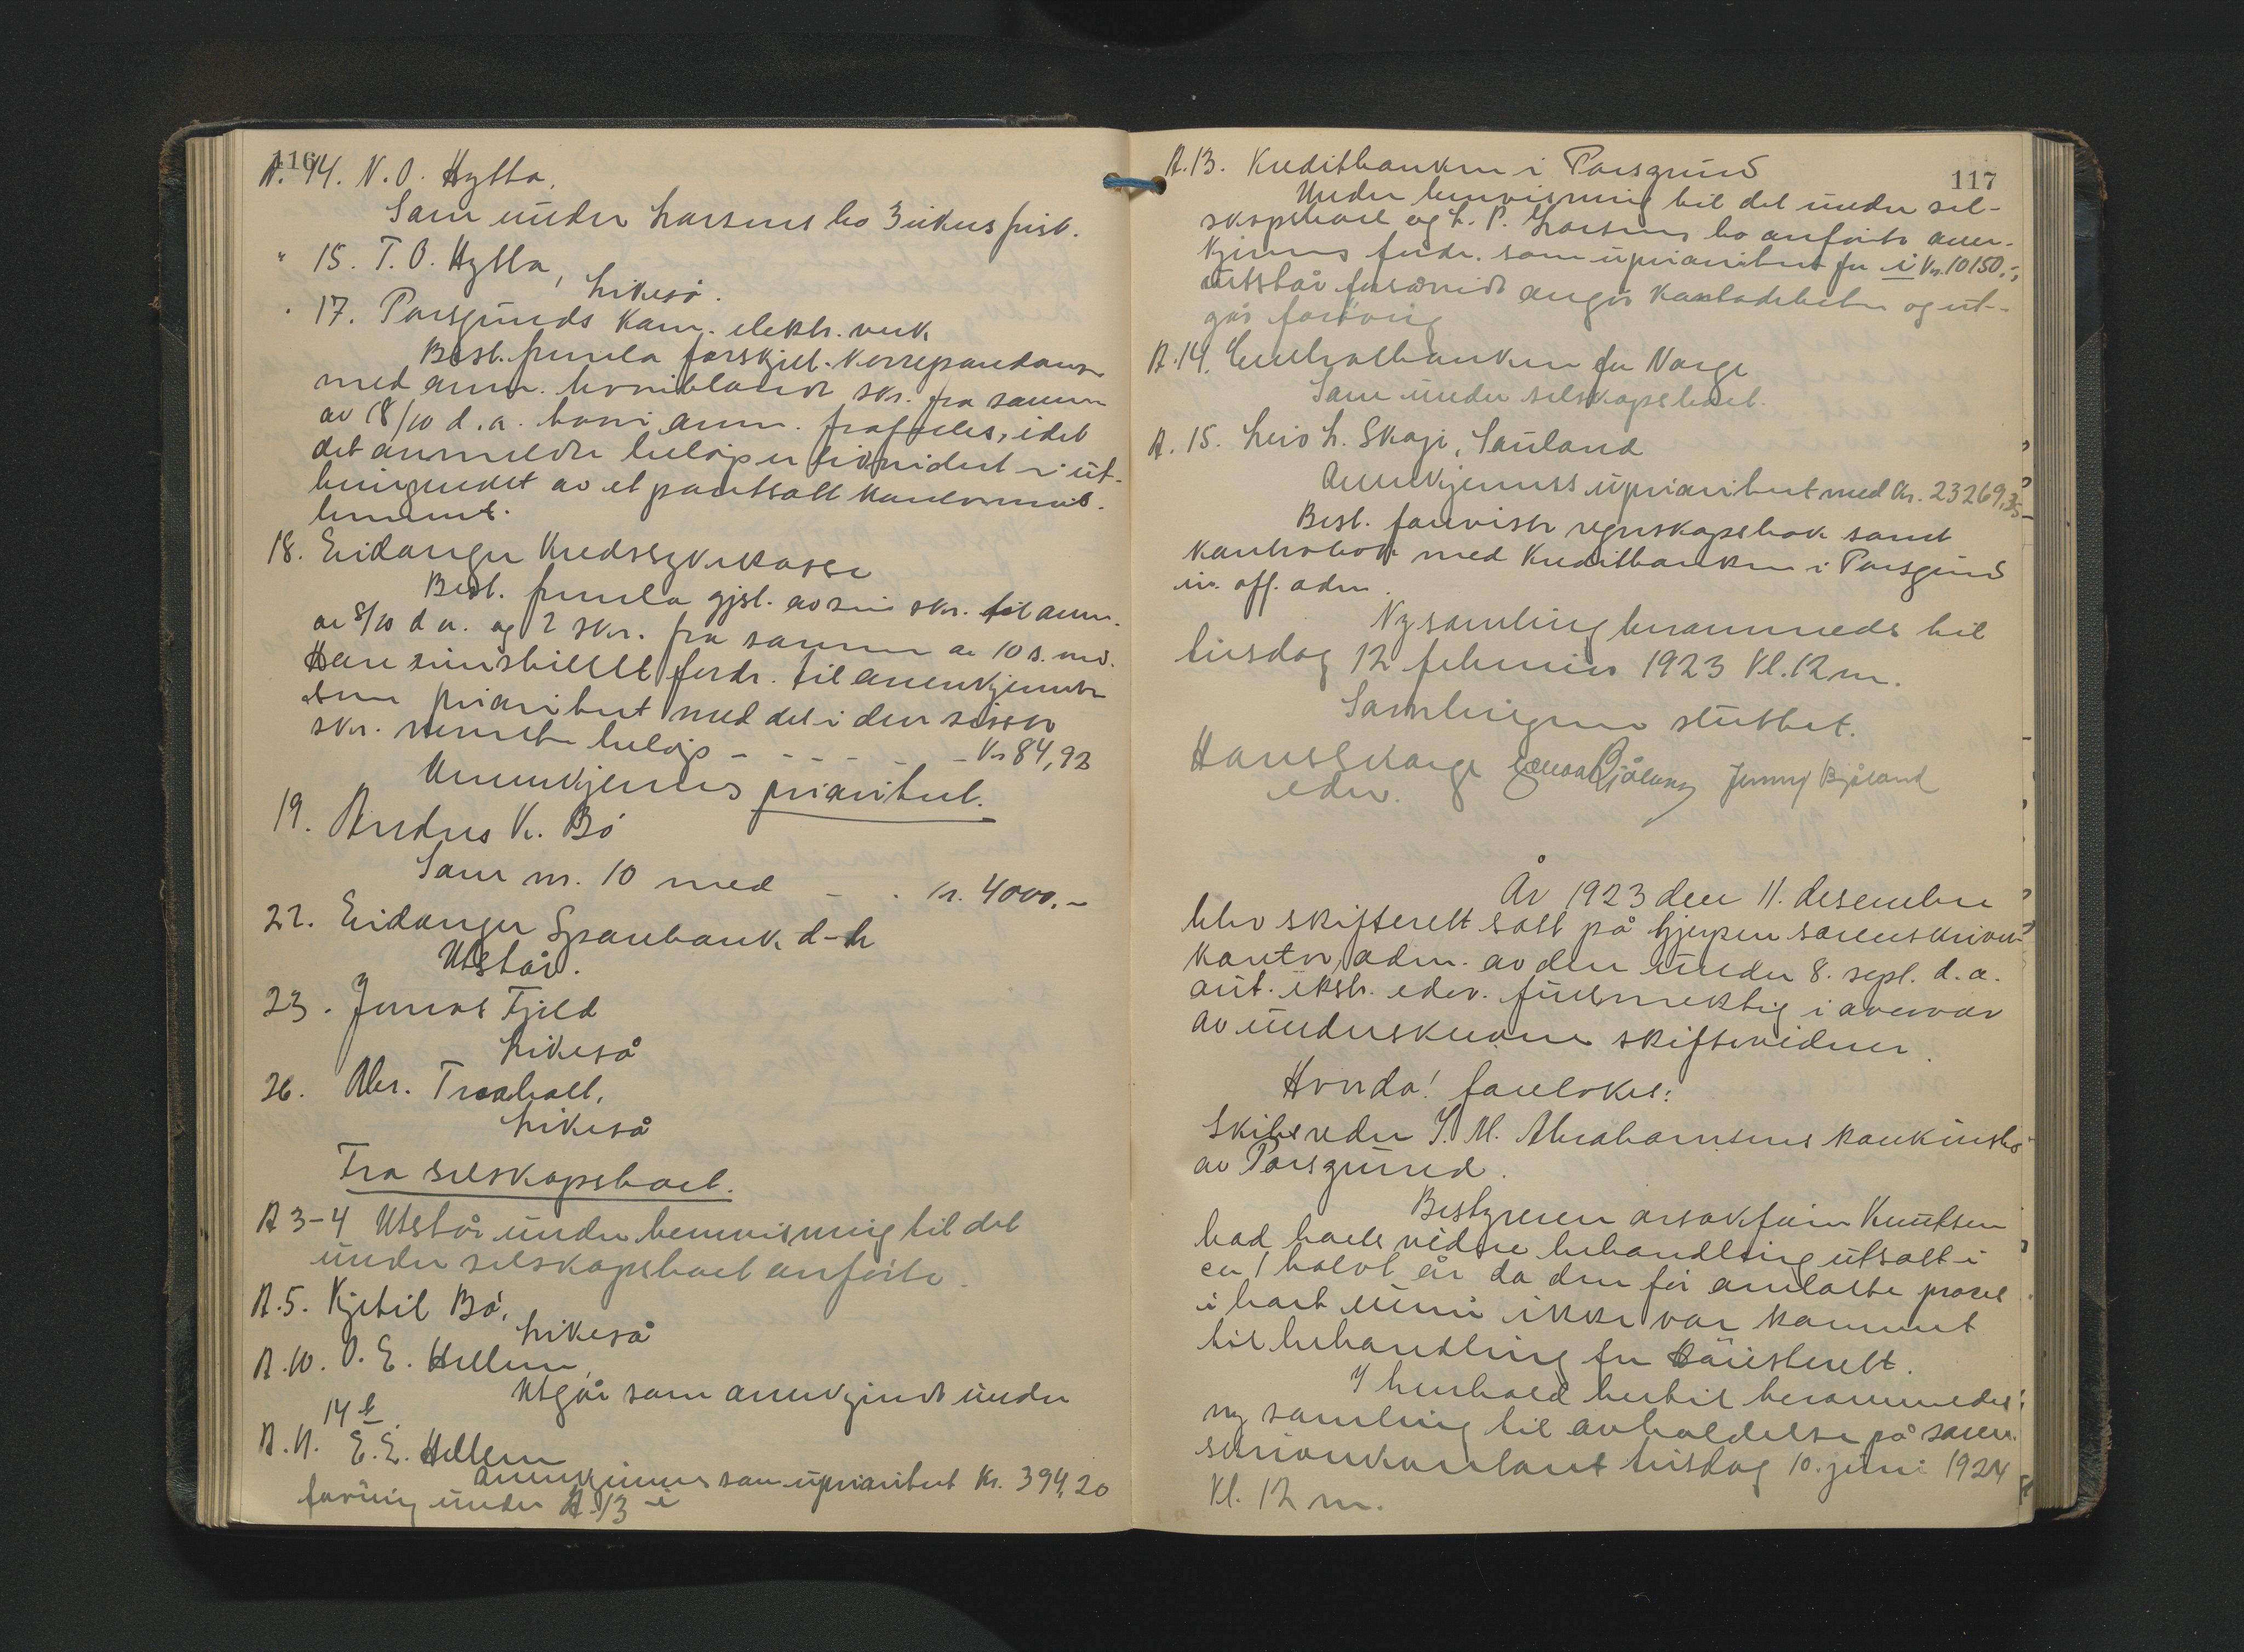 116
A. 14. N. O. Hytta,
Som under Larsens bo 3 ukers frist.
" 15. T. O. Hytta,
Likeså.
" 17. Porsgrunds kom. elektr. verk
Best. fremla forskjel. korrepondanse
med anm. hvoriblandt skr. fra samme
av 18/10 d. a. hvori anm. frafalles, idet
det anmeldte beløp er likvidert i ut-
bringendet av et pantsatt
18. Eidanger Kredssykekasse
Best. fremla gjst. av sin skr. til anm.
av 8/10 d. a. og 2 skr. fra samme av 10 s. md.
Han innstillet fordr. til anerkjennelse
som prioritert med det i den sisste
skr. nevnte beløp - - - - - Kr 84,92
Anerkjennes prioritert.
19. Andres K. Bø
Som nr. 10 med - - kr. 4000.-
22. Eidanger Sparebank d-h
Utstår.
23. Jonas Fjeld
Likeså
26. Abr. Traaholt,
Likeså
Fra selskapsboet.
A 3-4 Utstår under henvisning til det
under selskapsboet anførte.
A. 5. Kjetil Bø,
Likeså
A. 10. O. E. Hellem,
Utgår som anerkjendt under
14 b.
A. 11. E. E. Hellem
Anerkjennes som uprioritert Kr. 394,20
forøvrig under A. 13 i
117
A. 13. Kreditbanken i Porsgrund
Under henvisning til det under sel-
skapsboet og L. P. Larsens bo anførte aner-
kjennes fordr. som uprioritert for i Kr. 10150,-,
utstår forsåvidt angår kontodebeten og ut-
går forøvrig
A. 14. Centralbanken for Norge
Som under selskapsboet.
A. 15. Leiv L. Skaje, Sauland
Anerkjennes uprioritert med Kr. 23269,35
Best. foreviste regnskapsbok samt
kontrabok med Kreditbanken i Porsgrund
in. off. adm.
Ny samling berammedes til
tirsdag 12 februar 1923 Kl. 12 m.
Samlingen sluttet.
Hans Skarge Bjåland Jenny Bjåland
edsv.
År 1923 den 11. desember
blev skifterett satt på Gjerpen sorenskriver-
kontor, adm. av den under 8. sept. d. a.
aut. ekstr. edsv. fullmektig i overvær
av underskrevne skiftevidner.
Hvorda! foretokes:
Skibsreder S. M. Abrahamsens konkursbo
av Porsgrund.
Bestyreren o.r.sakfører Knudsen
bad boets videre behandling utsatt i
ca 1 halvt år da den før omtalte proces
i boet ennu ikke var kommet
til behandling for høiesterett.
I henhold hertil berammedes
ny samling til avholdelse på soren-
skriverkontoret tirsdag 10. juni 1924
Kl. 12 m.